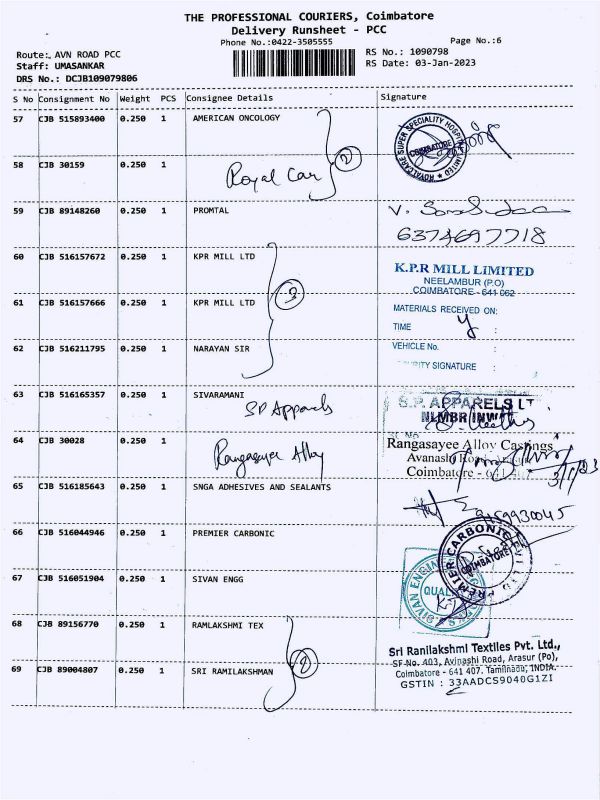 THE PROFESSIONAL COURIERS, Coimbatore
Delivery Runsheet - PCC
Phone No.:0422-3505555
Page No.:6
Route: AVN ROAD PCC
RS No.: 1090798
Staff: UMASANKAR
RS Date: 03-Jan-2023
DRS No.: DCJB109079806
S No Consignment No Weight PCS Consignee Details Signature
57 CJB 515893400 0.250 1 AMERICAN ONCOLOGY
ROYALCARE SUPER SPECIALITY HOSPITAL LIMITED
COIMBATORE
58 CJB 30159 0.250 1
Royal Car
2
59 CJB 89148260 0.250 1 PROMTAL
6374697718
60 CJB 516157672 0.250 1 KPR MILL LTD
61 CJB 516157666 0.250 1 KPR MILL LTD
3
62 CJB 516211795 0.250 1 NARAYAN SIR
K.P.R MILL LIMITED
NEELAMBUR (P.O)
COIMBATORE - 641 062
MATERIALS RECEIVED ON:
TIME :
VEHICLE No. :
SIGNATURE :
63 CJB 516165357 0.250 1 SIVARAMANI
SP Apparels
S.P. APPARELS LT
NLMBR INW
64 CJB 30028 0.250 1
Rangasayee Alloy
Rangasayee Alloy Castings
Avanashi Road
Coimbatore - 641 407
3/1/23
65 CJB 516185643 0.250 1 SNGA ADHESIVES AND SEALANTS
9159930045
66 CJB 516044946 0.250 1 PREMIER CARBONIC
PREMIER CARBONIC
COIMBATORE
67 CJB 516051904 0.250 1 SIVAN ENGG
68 CJB 89156770 0.250 1 RAMLAKSHMI TEX
69 CJB 89004807 0.250 1 SRI RAMILAKSHMAN
2
Sri Ranilakshmi Textiles Pvt. Ltd.,
SF No. 403, Avinashi Road, Arasur (Po),
Coimbatore - 641 407. Tamilnadu, INDIA.
GSTIN : 33AADCS9040G1ZI